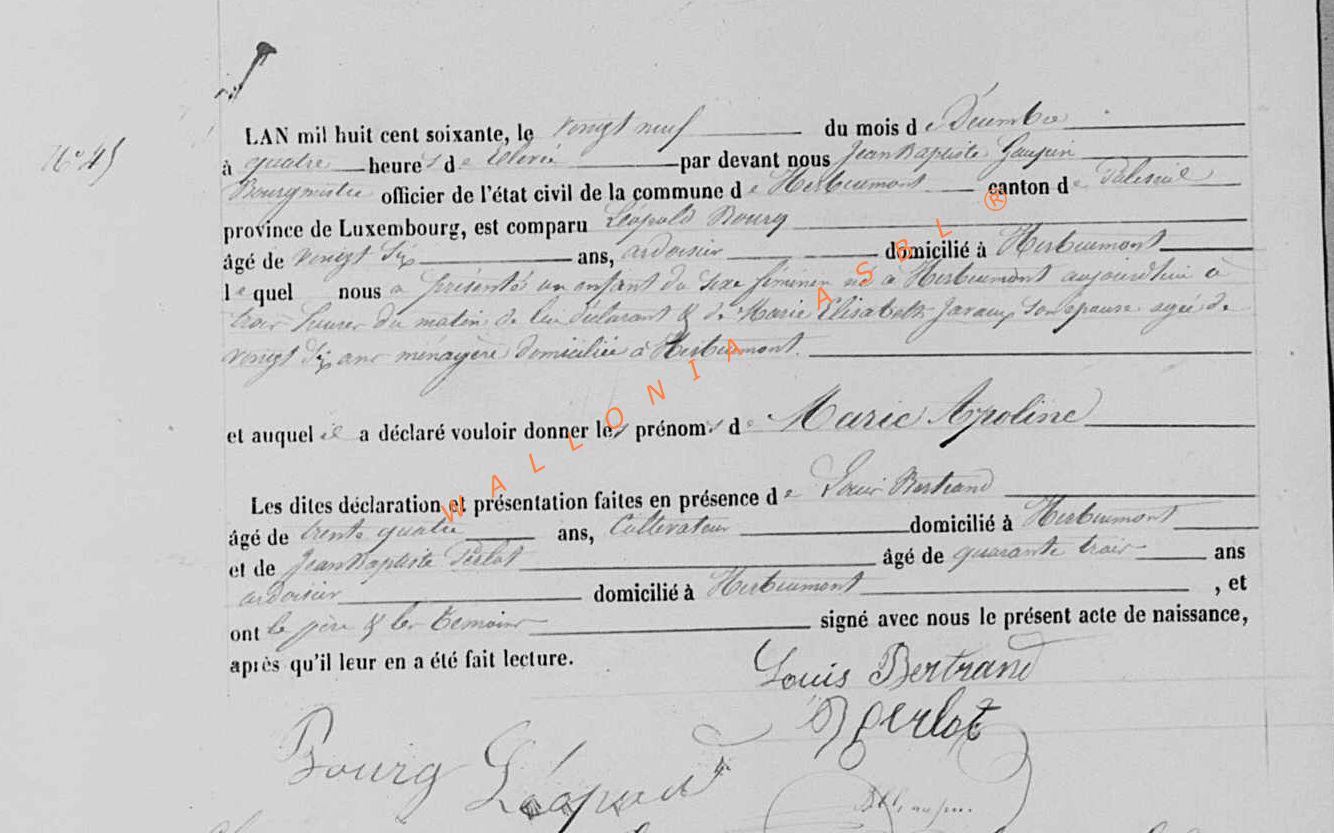 No 45
LAN mil huit cent soixante, le vingt neuf du mois de Décembre
à quatre heures de relevée par devant nous Jean Baptiste Gaupin
Bourgmestre officier de l'état civil de la commune de Herbeumont canton de Paliseul
province de Luxembourg, est comparu Léopold Bourg
âgé de vingt six ans, ardoisier domicilié à Herbeumont
lequel nous a présenté un enfant du sexe féminin né à Herbeumont aujourd'hui à
trois heures du matin de lui déclarant & de Marie Elisabeth Javaux son épouse agée de
vingt six ans ménagère domiciliée à Herbeumont.
et auquel il a déclaré vouloir donner les prénoms de Marie Apoline
Les dites déclaration et présentation faites en présence de Louis Bertrand
âgé de trente quatre ans, Cultivateur domicilié à Herbeumont
et de Jean Baptiste Perlot âgé de quarante trois ans
ardoisier domicilié à Herbeumont, et
ont le père & les temoins signé avec nous le présent acte de naissance,
après qu'il leur en a été fait lecture.
Louis Bertrand
Perlot
Bourg Léopold
WALLONIA ASBL ®